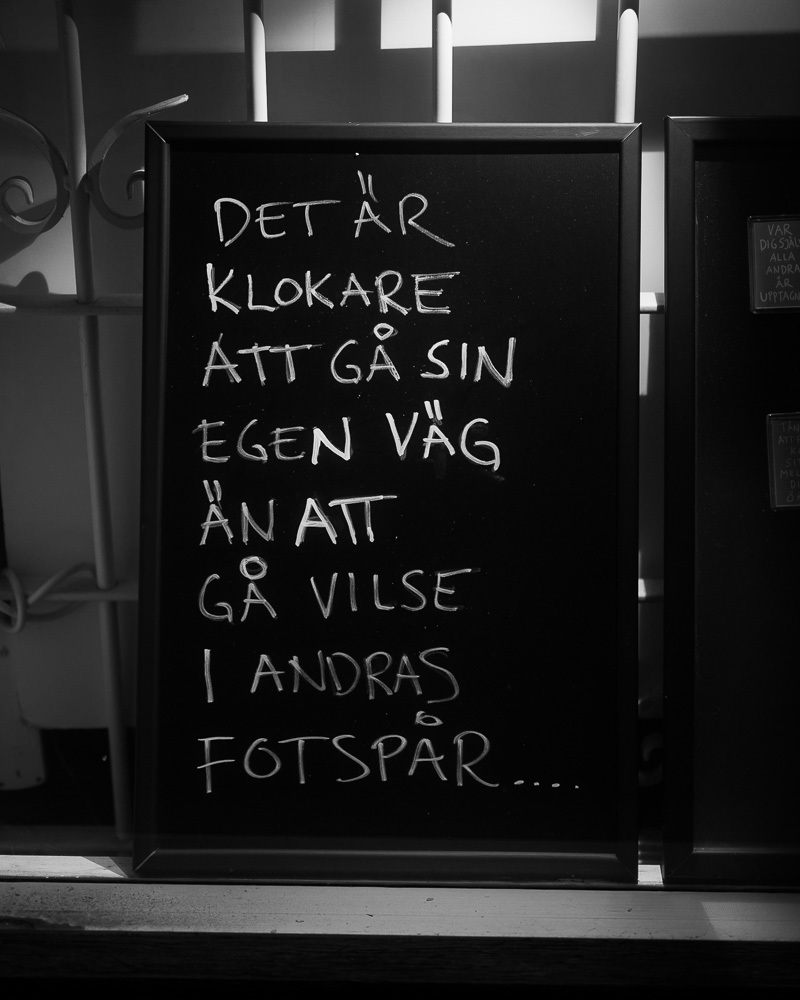 DET ÄR
KLOKARE
ATT GÅ SIN
EGEN VÄG
ÄN ATT
GÅ VILSE
I ANDRAS
FOTSPÅR....
VAR
DIG SJÄLV
ALLA
ANDRA
ÄR
UPPTAGNA